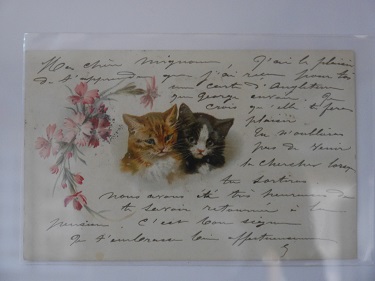 Ma chère mignonne J'ai le plaisir
de t'apprendre que j'ai reçu pour toi
une carte d'Angleterre
que George envoie. Je
crois qu'elle te fera
plaisir.
Tu n'oublieras
pas de venir
la chercher lorsque
tu sortiras
nous avons été très heureux de
te savoir retournée à la
pension, c'est bon signe
qui t'embrasse bien affectueusement